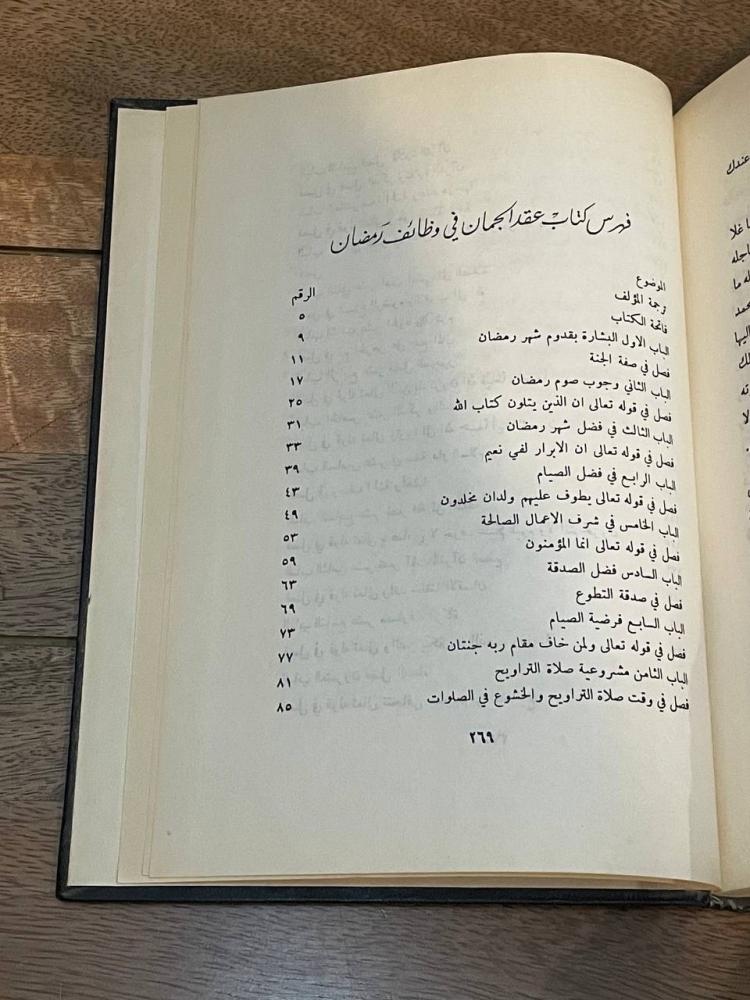 فهرس كتاب عقد الجمان في وظائف رمضان
الموضوع الرقم
ترجمة المؤلف ٥
فاتحة الكتاب ٩
الباب الاول البشارة بقدوم شهر رمضان ١١
فصل في صفة الجنة ١٧
الباب الثاني وجوب صوم رمضان ٢٥
فصل في قوله تعالى ان الذين يتلون كتاب الله ٣١
الباب الثالث في فضل شهر رمضان ٣٣
فصل في قوله تعالى ان الابرار لفي نعيم ٣٩
الباب الرابع في فضل الصيام ٤٣
فصل في قوله تعالى يطوف عليهم ولدان مخلدون ٤٩
الباب الخامس في شرف الاعمال الصالحة ٥٣
فصل في قوله تعالى انما المؤمنون ٥٩
الباب السادس فضل الصدقة ٦٣
فصل في صدقة التطوع ٦٩
الباب السابع فرضية الصيام ٧٣
فصل في قوله تعالى ولمن خاف مقام ربه جنتان ٧٧
الباب الثامن مشروعية صلاة التراويح ٨١
فصل في وقت صلاة التراويح والخشوع في الصلوات ٨٥
٢٦٩
عندك